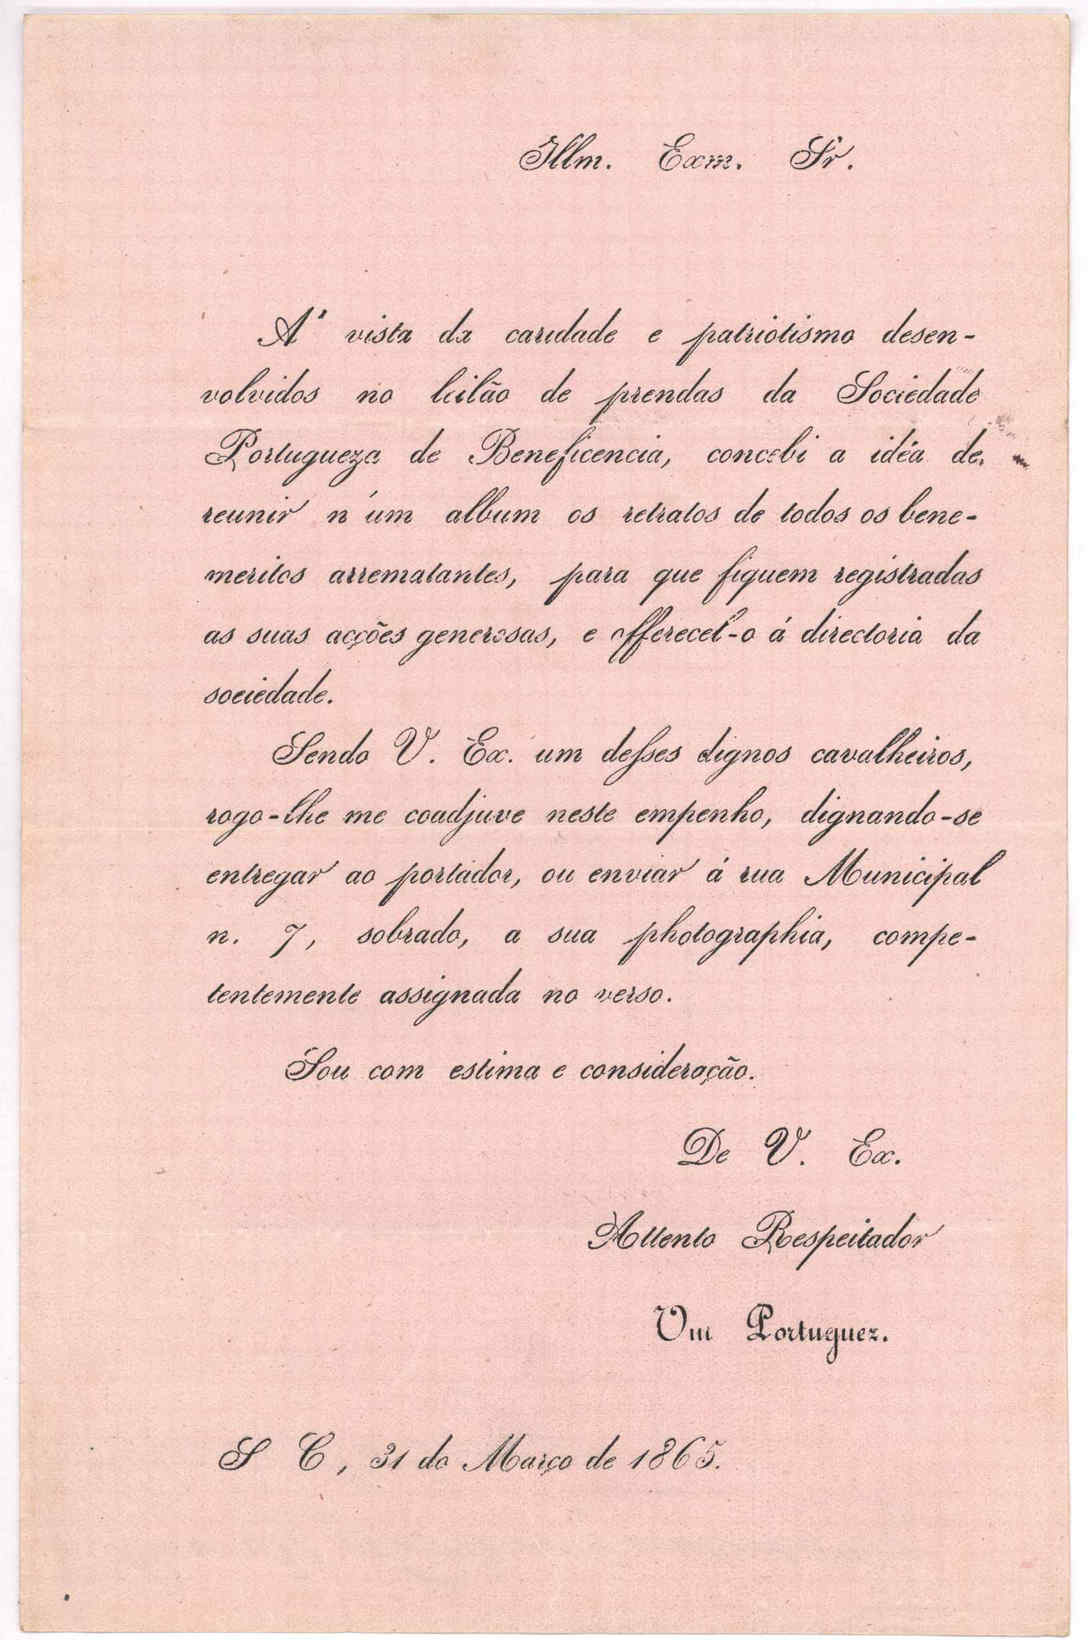 Illm. Exm. Sr.
A' vista da caridade e patriotismo desen-
volvidos no leilão de prendas da Sociedade
Portugueza de Beneficencia, concebi a idéa de
reunir n'um album os retratos de todos os bene-
meritos arrematantes, para que fiquem registradas
as suas acções generosas, e offerecel-o á directoria da
sociedade.
Sendo V. Ex. um desses dignos cavalheiros,
rogo-lhe me coadjuve neste empenho, dignando-se
entregar ao portador, ou enviar á rua Municipal
n. 7, sobrado, a sua photographia, compe-
tentemente assignada no verso.
Sou com estima e consideração.
De V. Ex.
Attento Respeitador
Um Portuguez.
S C, 31 de Março de 1865.